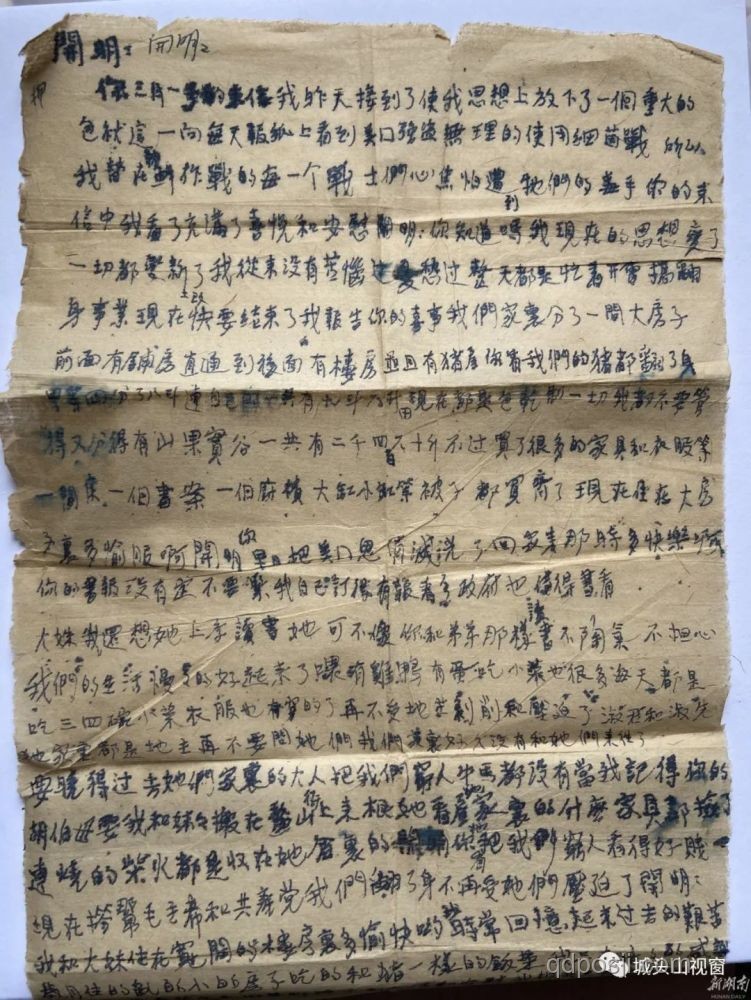 開明：開明：
你三月一号的来信我昨天接到了使我思想上放下了一個重大的
包袱這一向每天報紙上看到美口強盗無理的使用細菌戰 所以
我替在朝鮮作戰的每一个戰士們心焦怕遭到牠們的毒手你的来
信中我看了充滿了喜悦和安慰開明：你知道嗎我現在的思想變了
一切都變新了我從来没有苦惱过憂愁过整天都是忙着开會搞翻
身事業現在土改快要结束了我報告你的喜事我們家裏分了一間大房子
前面有鋪房直通到後面有樓房並且有猪屋你看我們的猪都翻了身
分了八斗 一共有九斗 現在都 一切我都不要管
得又分得有山果實谷一共有二千四百六十斤不过買了很多的家具和衣服等
一間床一個書案一個廚櫃大缸小缸等被子都買齊了現在住在大房
子裏多愉服啊開明你早日把美口思消滅洗了回家来那時多快樂
你的書報没有丢不要 我自己訂得有報看了政府也借得書看
大妹我還想她上学讀書她可不像你和弟弟那樣讀書不陶氣不担心
我們的生活慢慢的好起来了喂有雞鴨有蛋吃小菜也很多每天都是
吃三四碗小菜衣服也有買的了再不受地主剥削和壓迫了淑 和淑先
她家裏都是地主再不要問她們我們 没有和她們来往了
要曉得过去她們家裏的大人把我們窮人牛馬都没有當我記得你的
胡伯母要我和妹妹搬在 山街上来根她看屋她家裏的什麽家具都撿了
連燒的柴火都是收在她 裏的開明你 她把我們窮人看得好賤
現在搭幫毛主席和共產党我們翻了身不再受她們壓迫了開明：
我和大妹住在寬闊的樓房裏多愉快喲我時常回憶起来过去的艱苦
住的 小的房子吃的和猪一樣的飯菜
城头山视窗
新湖南
HUNAN TODAY